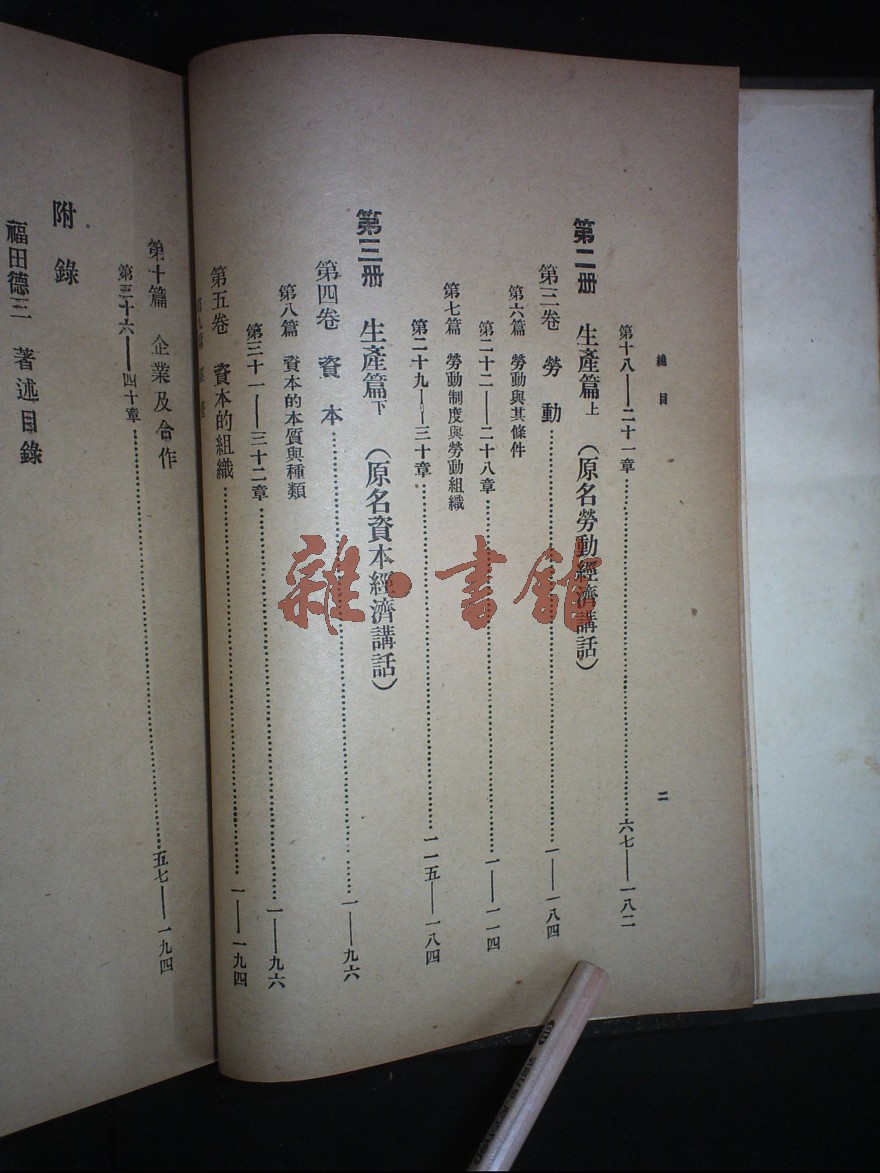 總目
二
第十八——二十一章……六七——一八二
第二册 生產篇上(原名勞動經濟講話)
第三卷 勞動……一——一八四
第六篇 勞動與其條件
第二十二——二十八章……一——一一四
第七篇 勞動制度與勞動組織
第二十九——三十章……一一五——一八四
第三册 生產篇下(原名資本經濟講話)
第四卷 資本……一——九六
第八篇 資本的本質與種類
第三十一——三十二章……一——九六
第五卷 資本的組織……一——一九四
第十篇 企業及合作
第三十六——四十章……五七——一九四
附錄
福田德三 著述目錄
雜·書館